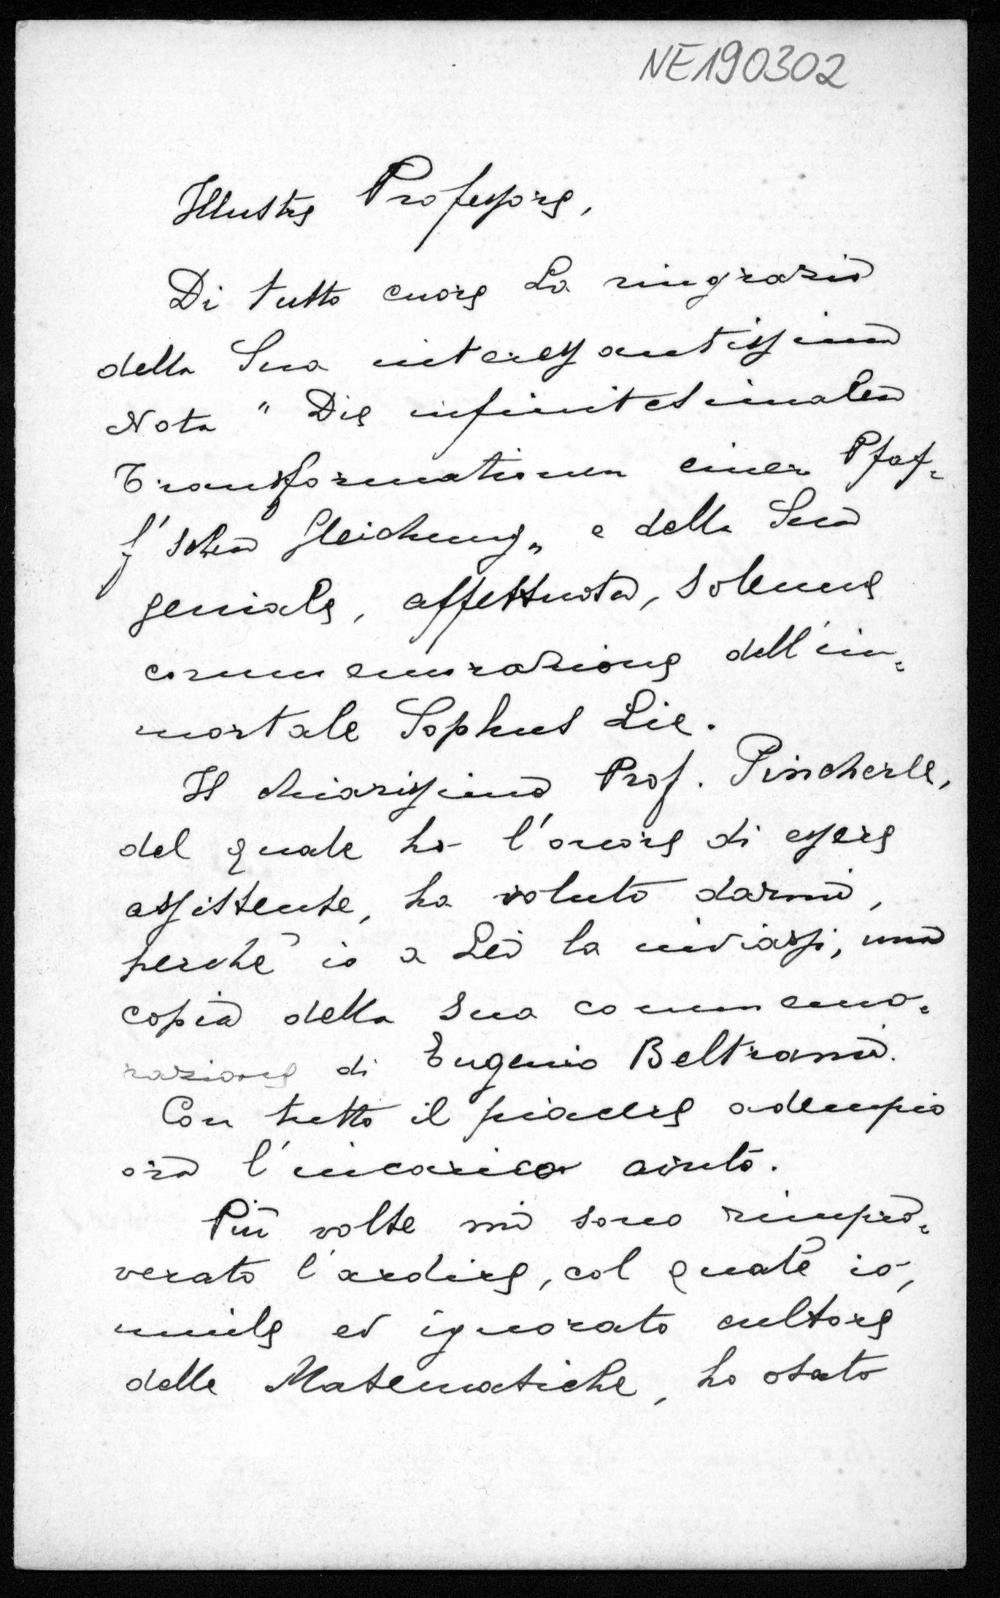 NE190302
Illustre Professore,
Di tutto cuore La ringrazio
della Sua interessantissima
Nota " Die infinitesimalen
Transformationen einer Pfaf-
f'schen Gleichung „ e della Sua
geniale, affettuosa, solenne
commemorazione dell'im-
mortale Sophus Lie.
Il chiarissimo Prof. Pincherle,
del quale ho l'onore di essere
assistente, ha voluto darmi,
perchè io a Lei la inviassi, una
copia della sua commemo-
razione di Eugenio Beltrami.
Con tutto il piacere adempio
ora l'incarico avuto.
Più volte mi sono rimpro-
verato l'ardire, col quale io,
umile ed ignorato cultore
delle Matematiche, ho osato